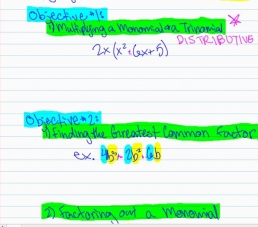 Objective #1:
1) Multiplying a Monomial & a Trinomial *
DISTRIBUTIVE
2x(x²+6x+5)
Objective #2:
1) Finding the Greatest Common Factor
ex. 4b³+2b²+6b
2) Factoring out a Monomial